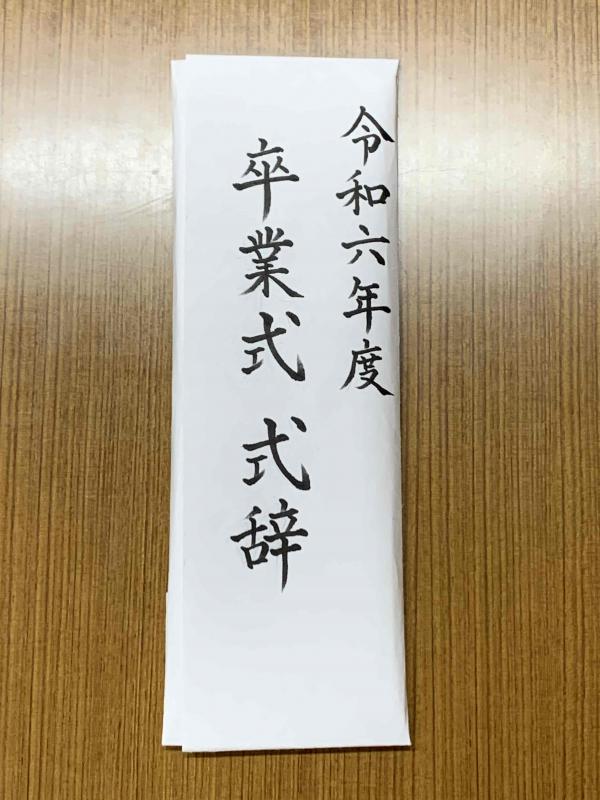 令和六年度
卒業式 式辞